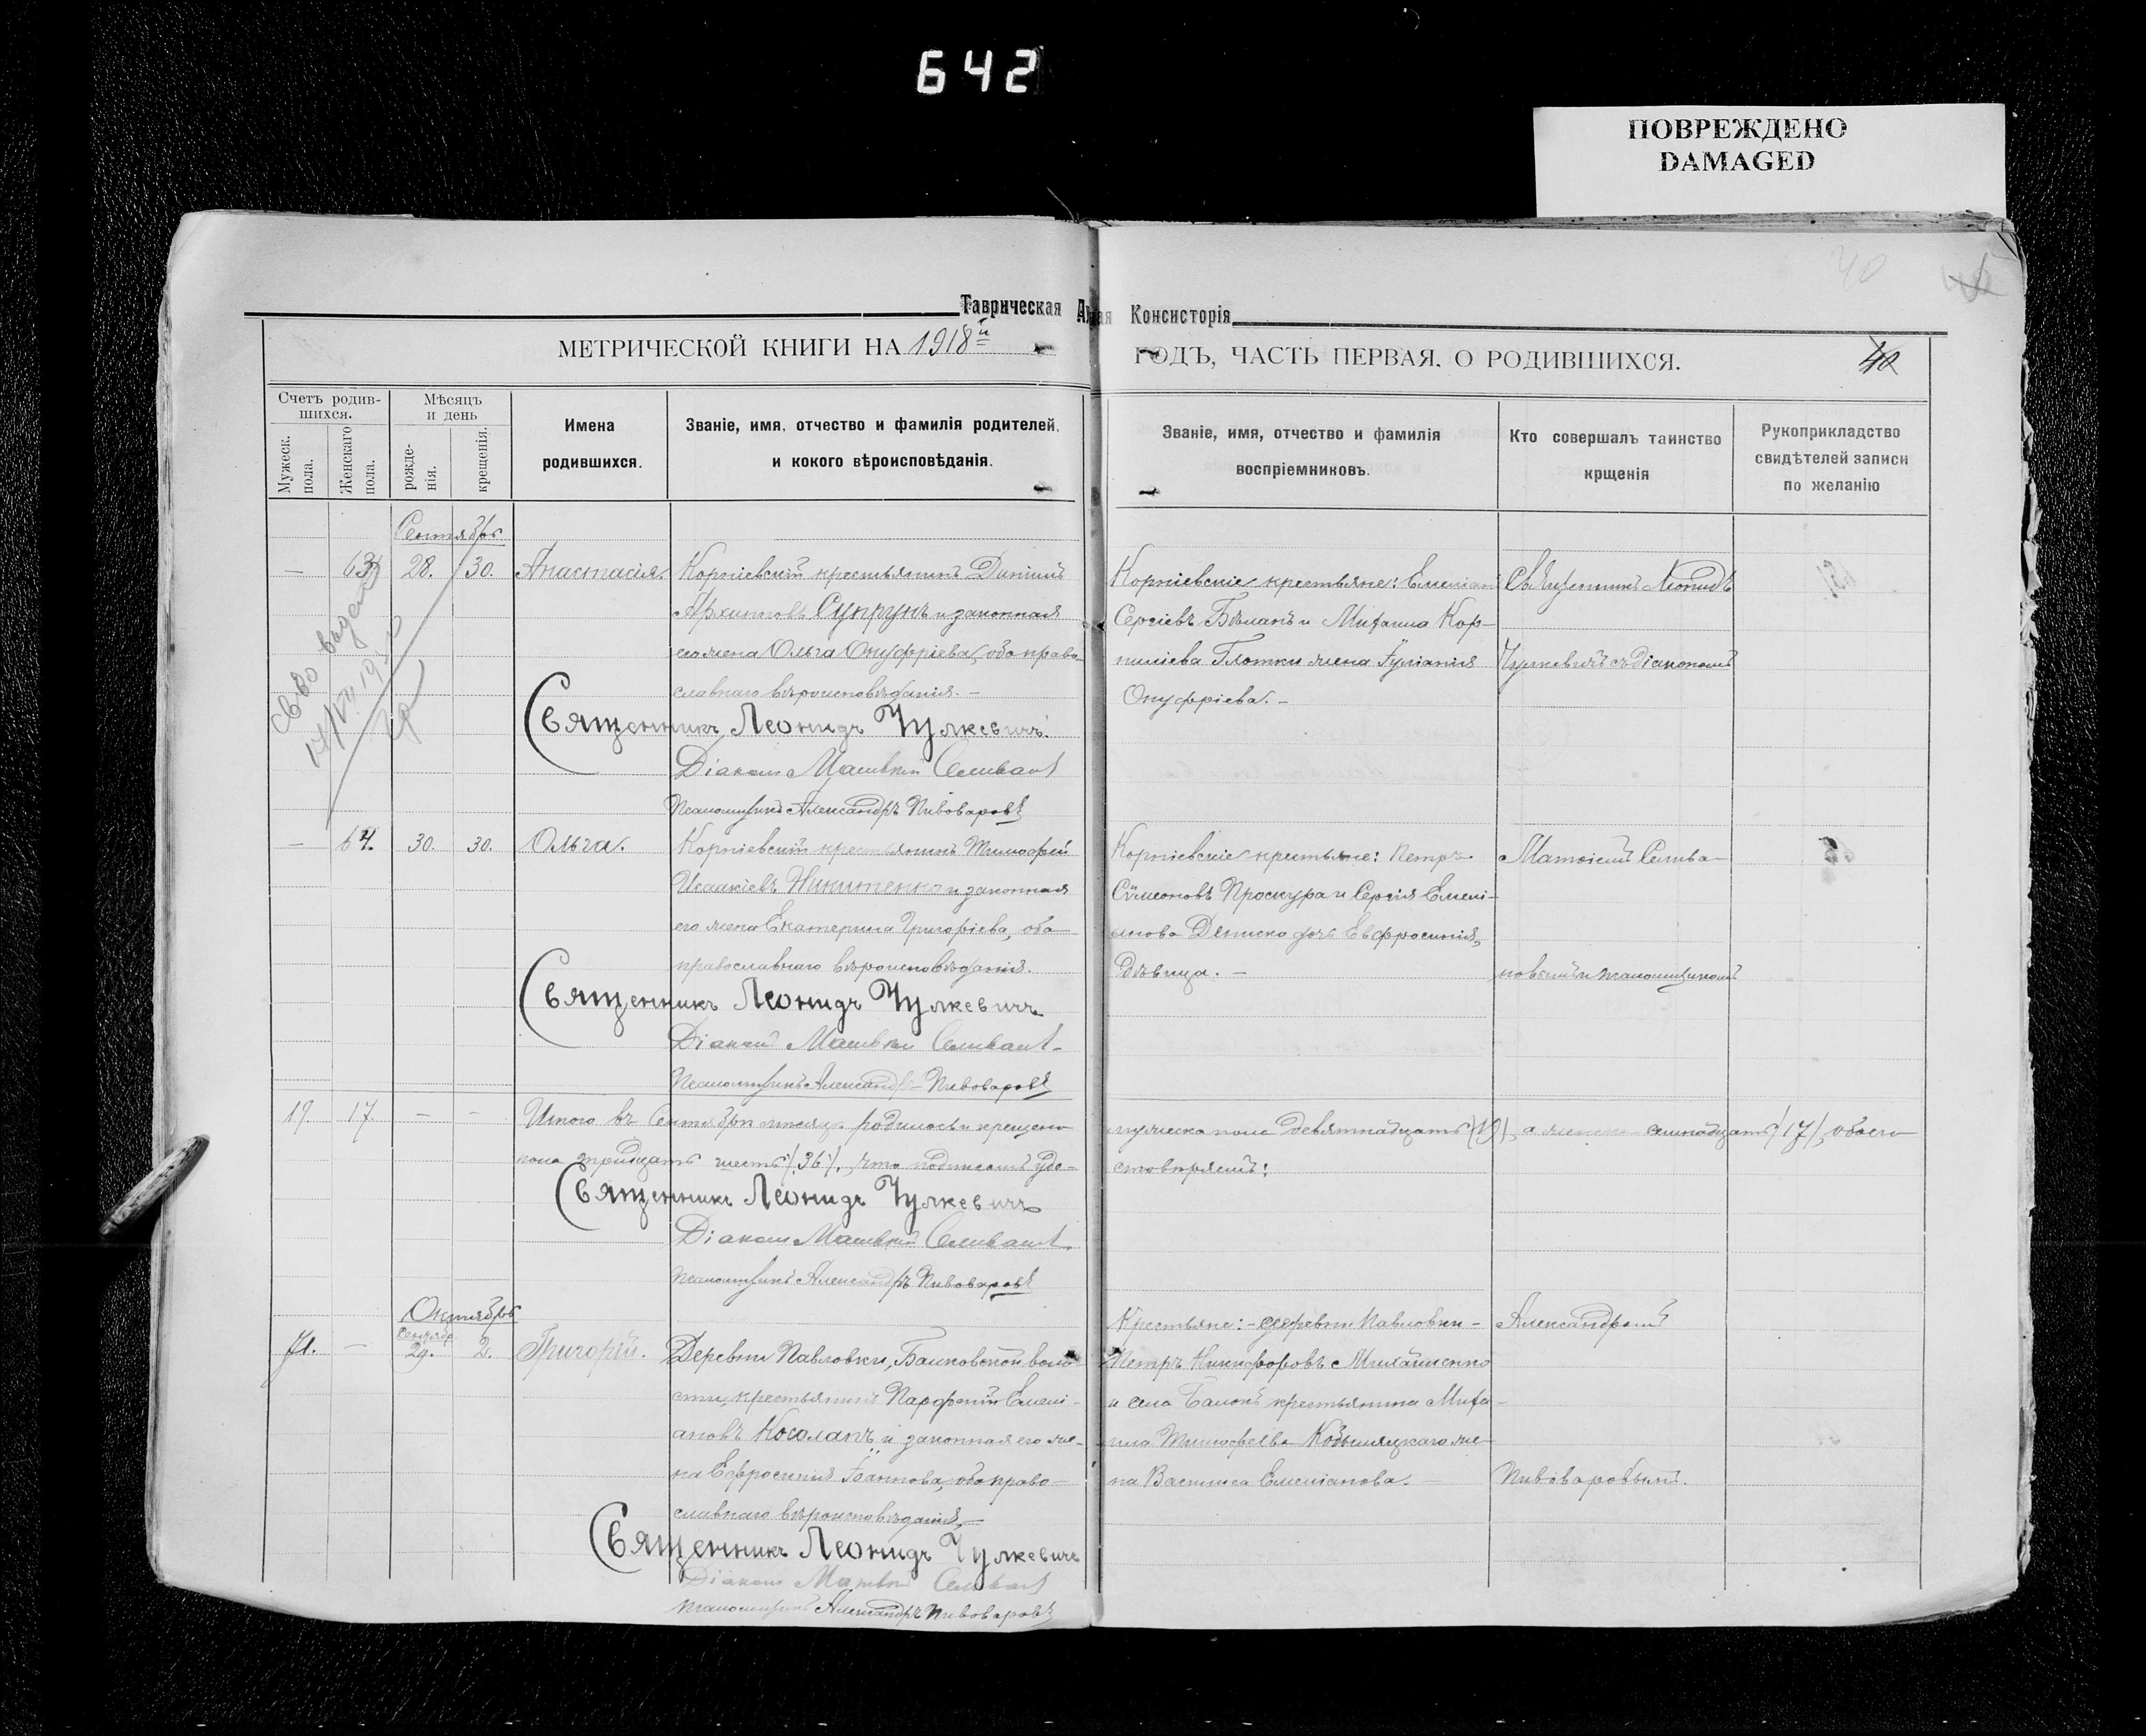 642
ПОВРЕЖДЕНО
DAMAGED
40
Таврическая
Консисторія
МЕТРИЧЕСКОЙ КНИГИ НА 1918й
ГОДЪ, ЧАСТЬ ПЕРВАЯ, О РОДИВШИХСЯ.
40
Счетъ родив-
шихся.
Мужеск.
пола.
Женскаго
пола.
Мѣсяцъ
и день
рожде-
нія.
крещенія.
Имена
родившихся.
Званіе, имя, отчество и фамилія родителей,
и кокого вѣроисповѣданія.
Званіе, имя, отчество и фамилія
воспріемниковъ.
Кто совершалъ таинство
крщенія
Рукоприкладство
свидѣтелей записи
по желанію
Сентябрь
— 63 28. 30. Анастасія.
Корніевскій крестьянинъ Даніилъ
Архиповъ Супрунъ и законная
его жена Ольга Онуфріева, оба право-
славнаго вѣроисповѣданія. —
Священникъ Леонидъ Чулкевичъ.
Діаконъ Матвѣй Селиванъ
Псаломщикъ Александръ Пивоваровъ
Корніевскіе крестьяне: Емеліан
Сергіевъ Бѣланъ и Михаила Кор-
ниліева Глотки жена Іуліанія
Онуфріева. —
Священникъ Леонидъ
Чулкевичъ съ діакономъ
св-во выдано
— 64. 30. 30. Ольга.
Корніевскій крестьянинъ Тимофей
Исаакіевъ Никитенко и законная
его жена Екатерина Григоріева, оба
православнаго вѣроисповѣданія.
Священникъ Леонидъ Чулкевичъ
Діаконъ Матвѣй Селиванъ
Псаломщикъ Александръ Пивоваровъ
Корніевскіе крестьяне: Петръ
Сѵмеоновъ Проскура и Сергія Емелі-
анова Дениско дочь Евфросинія,
дѣвица. —
Матвіемъ Селива-
новымъ и псаломщикомъ
19. 17. — — Итого въ Сентябрѣ мѣсяцѣ родилось и крещено
мужеска пола девятнадцать (19), а женска семнадцать (17), обоего
пола тридцать шесть (36), что подписомъ удо-
стовѣряемъ:
Священникъ Леонидъ Чулкевичъ
Діаконъ Матвѣй Селиванъ
Псаломщикъ Александръ Пивоваровъ
Октябрь
Сентябр.
71. — 29. 2. Григорій.
Деревни Павловки, Балковской воло-
сти, крестьянинъ Парфеній Емелі-
ановъ Косолапъ и законная его же-
на Ефросинія Іоаннова, оба право-
славнаго вѣроисповѣданія, —
Священникъ Леонидъ Чулкевичъ
Діаконъ Матвѣй Селиванъ
Псаломщикъ Александръ Пивоваровъ
Крестьяне: - деревни Павловки -
Петръ Никифоровъ Михайленко
и села Балокъ крестьянина Миха-
ила Тимофеева Кобыляцкаго же-
на Василиса Емеліанова. —
Александромъ
Пивоваровымъ.